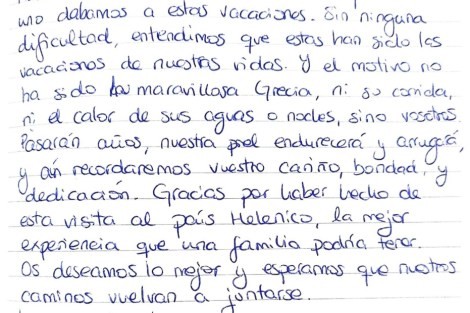 uno dábamos a estas vacaciones. Sin ninguna
dificultad, entendimos que estas han sido las
vacaciones de nuestras vidas. Y el motivo no
ha sido la maravillosa Grecia, ni su comida,
ni el calor de sus aguas o noches, sino vosotros.
Pasarán años, nuestra piel endurecerá y arrugará,
y aún recordaremos vuestro cariño, bondad, y
dedicación. Gracias por haber hecho de
esta visita al país Helenico, la mejor
experiencia que una familia podría tener.
Os deseamos lo mejor y esperamos que nuestros
caminos vuelvan a juntarse.